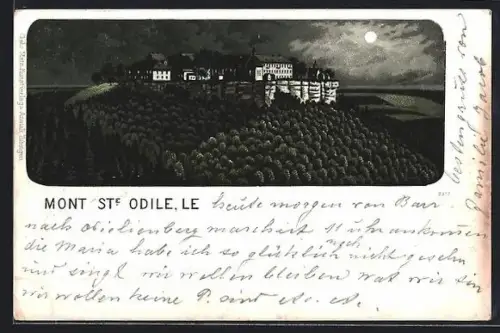 MONT STE ODILE, LE heute morgen von Barr
nach Odielienberg marschirt 11 uhr ankommen
die Maria habe ich so glücklich noch nicht gesehn
und singt wir wollen bleiben wat wir sin
wir wollen keine P. sind etc. etc.
bestengruss von
Familie Jacob